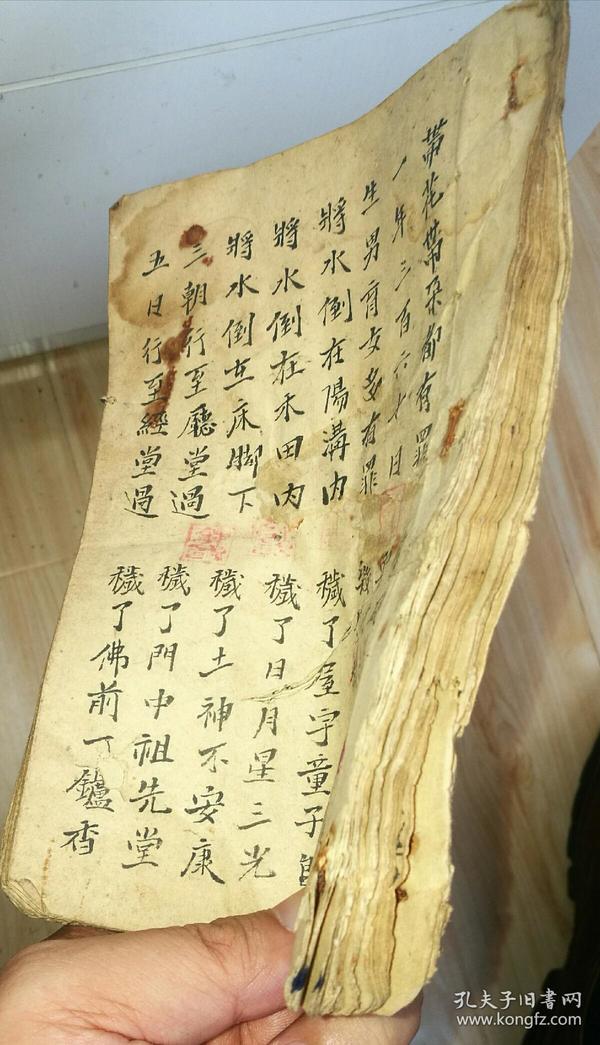 帶花帶朵都有罪
一年三百六十日
生男育女多有罪
將水倒在陽溝內
穢了屋宇童子
將水倒在水田內
穢了日月星三光
將水倒在床脚下
穢了土神不安康
三朝行至廳堂過
穢了門中祖先堂
五日行至經堂過
穢了佛前一鑪香
孔夫子旧书网
www.kongfz.com